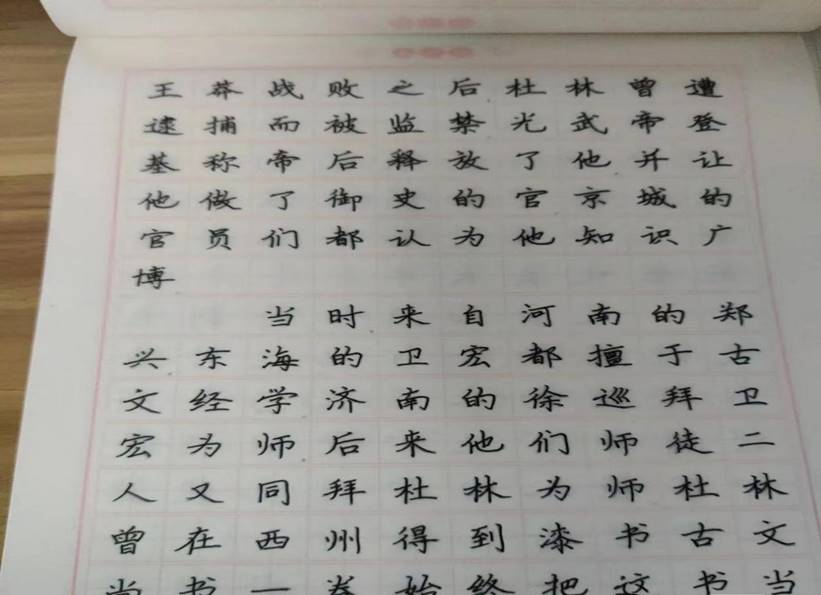 王莽战败之后杜林曾遭
逮捕而被监禁光武帝登
基称帝后释放了他并让
他做了御史的官京城的
官员们都认为他知识广
博
当时来自河南的郑
兴东海的卫宏都擅于古
文经学济南的徐巡拜卫
宏为师后来他们师徒二
人又同拜杜林为师杜林
曾在西州得到漆书古文
尚书一卷始终把这书当